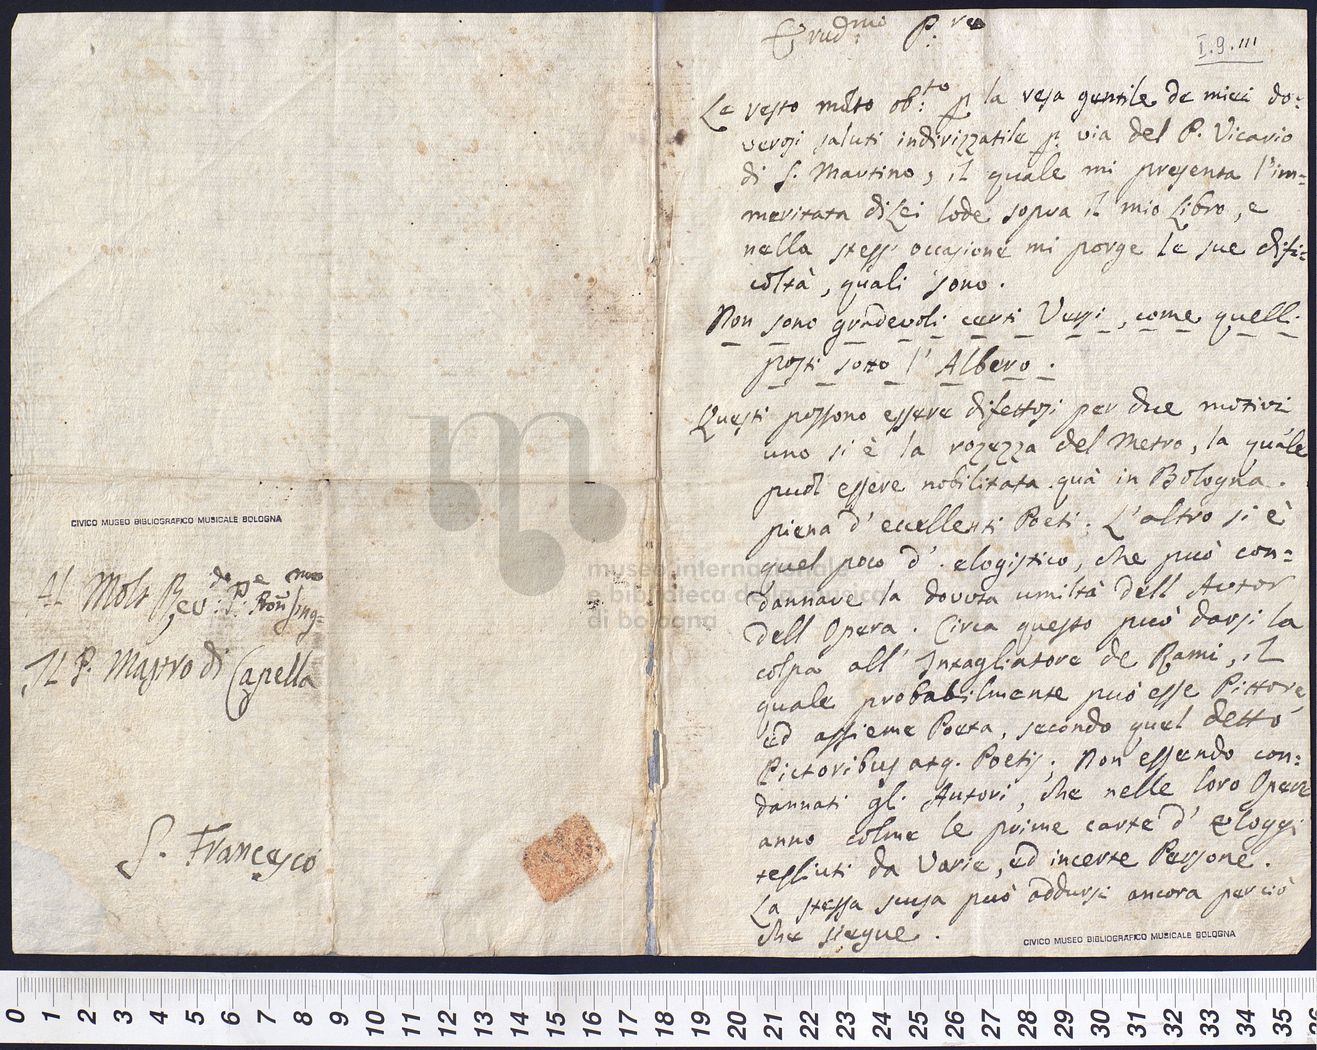 CIVICO MUSEO BIBLIOGRAFICO MUSICALE BOLOGNA
Al Molt Rev:do P:e
Il P. Mastro di Capella
S. Francesco
Erud:mo P:re
I.9.III
Le resto molto ob:to p la resa gentile de miei do:
verosi saluti indirizzatile p. via del P. Vicario
di S. Martino, il quale mi presenta l'im=
meritata di Lei lode sopra il mio Libro, e
nella stess occasione mi porge le sue difi:
coltà, quali sono.
Non sono gradevoli certi Versi, come quelli
posti sotto l'Albero.
Questi possono essere difettosi per due motivi
uno si è la rozezza del Metro, la quale
può essere nobilitata quà in Bologna.
piena d'eccellenti Poeti; L'altro si è
quel poco d'elogistico, che può con=
dannare la dovuta umiltà dell Autor
dell Opera. Circa questo può darsi la
colpa all'Intagliatore de Rami, il
quale probabilmente può esse Pittore,
ed assieme Poeta, secondo quel detto
Pictoribus atq. Poetis; Non essendo con=
dannati gl'Autori, che nelle loro Opere
anno colme le prime carte d'eloggi
tessiuti da Varie, ed incerte Persone.
La stessa scusa può addursi ancora perciò
che siegue.
CIVICO MUSEO BIBLIOGRAFICO MUSICALE BOLOGNA
museo internazionale
e biblioteca della musica
di bologna
0 1 2 3 4 5 6 7 8 9 10 11 12 13 14 15 16 17 18 19 20 21 22 23 24 25 26 27 28 29 30 31 32 33 34 35